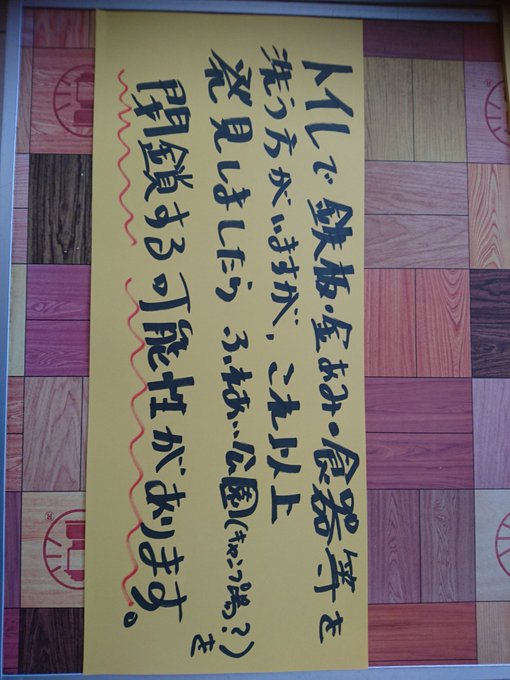 トイレで鉄板・金あみ・食器等を
洗う方がいますが、これ以上
発見しましたら ふれあい公園(キャンプ場?)を
閉鎖する可能性があります。